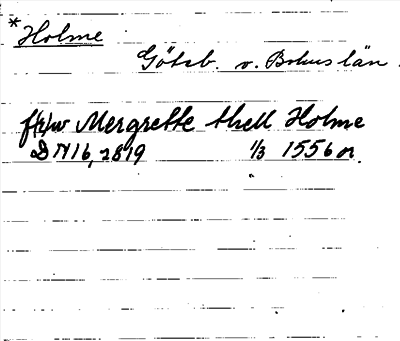 *Holme
Göteb. o. Bohuslän.
frw Mergrette thell Holme
DN 16, 2819 1/3 1556 or.